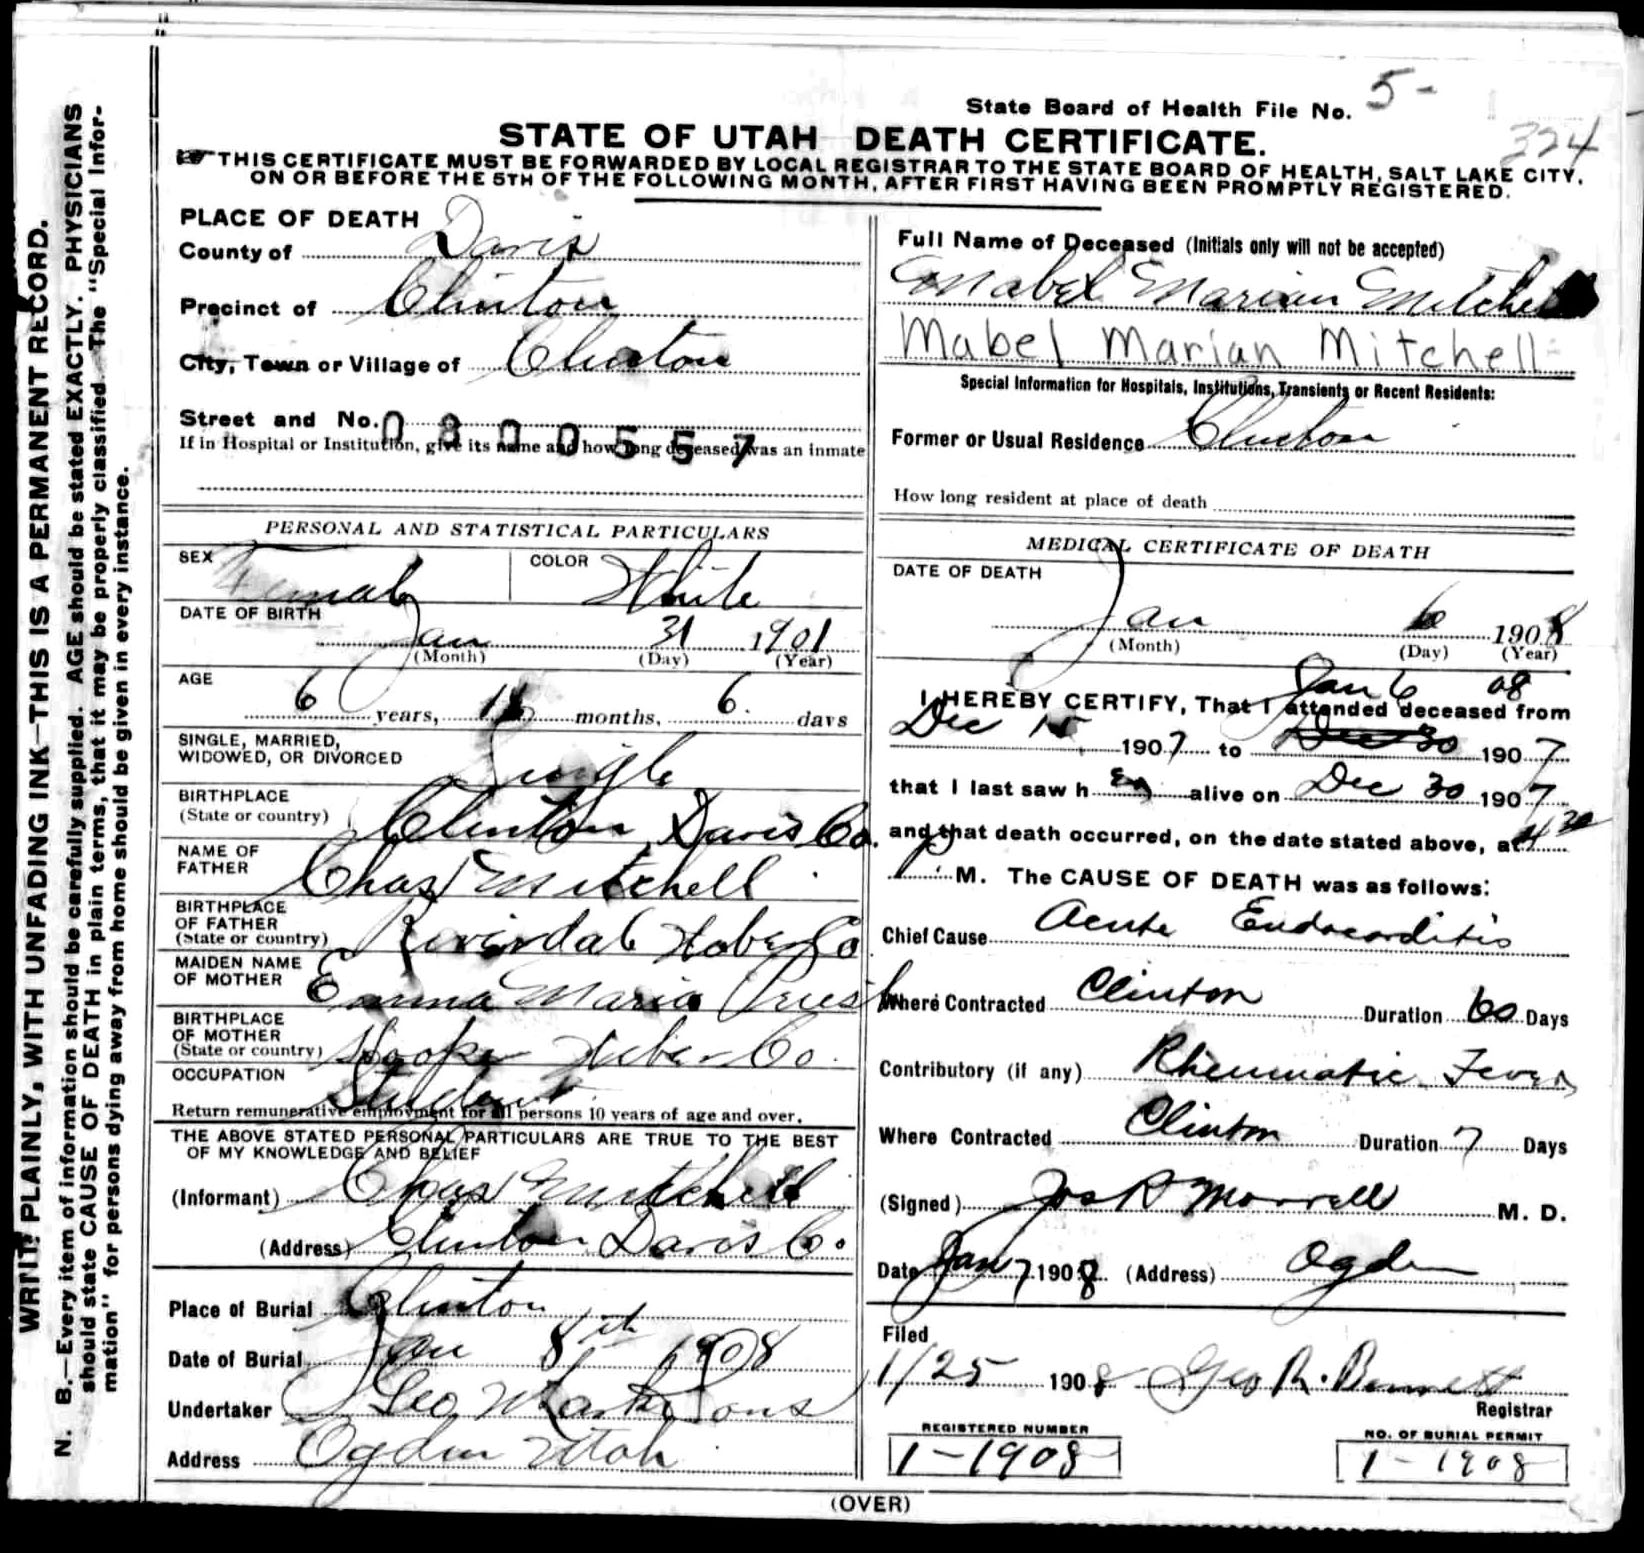 State Board of Health File No. 5-
324
STATE OF UTAH DEATH CERTIFICATE.
THIS CERTIFICATE MUST BE FORWARDED BY LOCAL REGISTRAR TO THE STATE BOARD OF HEALTH, SALT LAKE CITY,
ON OR BEFORE THE 5TH OF THE FOLLOWING MONTH, AFTER FIRST HAVING BEEN PROMPTLY REGISTERED.
WRITE PLAINLY, WITH UNFADING INK—THIS IS A PERMANENT RECORD.
N. B.—Every item of information should be carefully supplied. AGE should be stated EXACTLY. PHYSICIANS
should state CAUSE OF DEATH in plain terms, that it may be properly classified. The "Special Infor-
mation" for persons dying away from home should be given in every instance.
PLACE OF DEATH
County of Davis
Precinct of Clinton
City, Town or Village of Clinton
Street and No.
0800557
If in Hospital or Institution, give its name and how long deceased was an inmate
PERSONAL AND STATISTICAL PARTICULARS
SEX Female COLOR White
DATE OF BIRTH
Jan 31 1901
(Month) (Day) (Year)
AGE
6 years, 11 months, 6. days
SINGLE, MARRIED,
WIDOWED, OR DIVORCED Single
BIRTHPLACE
(State or country) Clinton Davis Co.
NAME OF
FATHER Chas Mitchell
BIRTHPLACE
OF FATHER
(State or country) Riverdale Weber Co
MAIDEN NAME
OF MOTHER Emma Maria Priest
BIRTHPLACE
OF MOTHER
(State or country) Hooper Weber Co.
OCCUPATION Student
Return remunerative employment for all persons 10 years of age and over.
THE ABOVE STATED PERSONAL PARTICULARS ARE TRUE TO THE BEST
OF MY KNOWLEDGE AND BELIEF
(Informant) Chas Mitchell
(Address) Clinton Davis Co.
Place of Burial Clinton
Date of Burial Jan 8th 1908
Undertaker Geo W Larkin Sons
Address Ogden Utah
Full Name of Deceased (Initials only will not be accepted)
Mabel Marian Mitchell
Mabel Marian Mitchell
Special Information for Hospitals, Institutions, Transients or Recent Residents:
Former or Usual Residence Clinton
How long resident at place of death
MEDICAL CERTIFICATE OF DEATH
DATE OF DEATH
Jan 6 1908
(Month) (Day) (Year)
Jan 6 08
I HEREBY CERTIFY, That I attended deceased from
Dec 15 1907 to Dec 30 1907
that I last saw her alive on Dec 30 1907
and that death occurred, on the date stated above, at 4 30
P. M. The CAUSE OF DEATH was as follows:
Chief Cause Acute Endocarditis
Where Contracted Clinton Duration 60 Days
Contributory (if any) Rheumatic Fever
Where Contracted Clinton Duration 7 Days
(Signed) Jos R Morrell M. D.
Date Jan 7 1908 (Address) Ogden
Filed
1/25 1908 Geo R. Bennett
Registrar
REGISTERED NUMBER
1-1908
NO. OF BURIAL PERMIT
1-1908
(OVER)